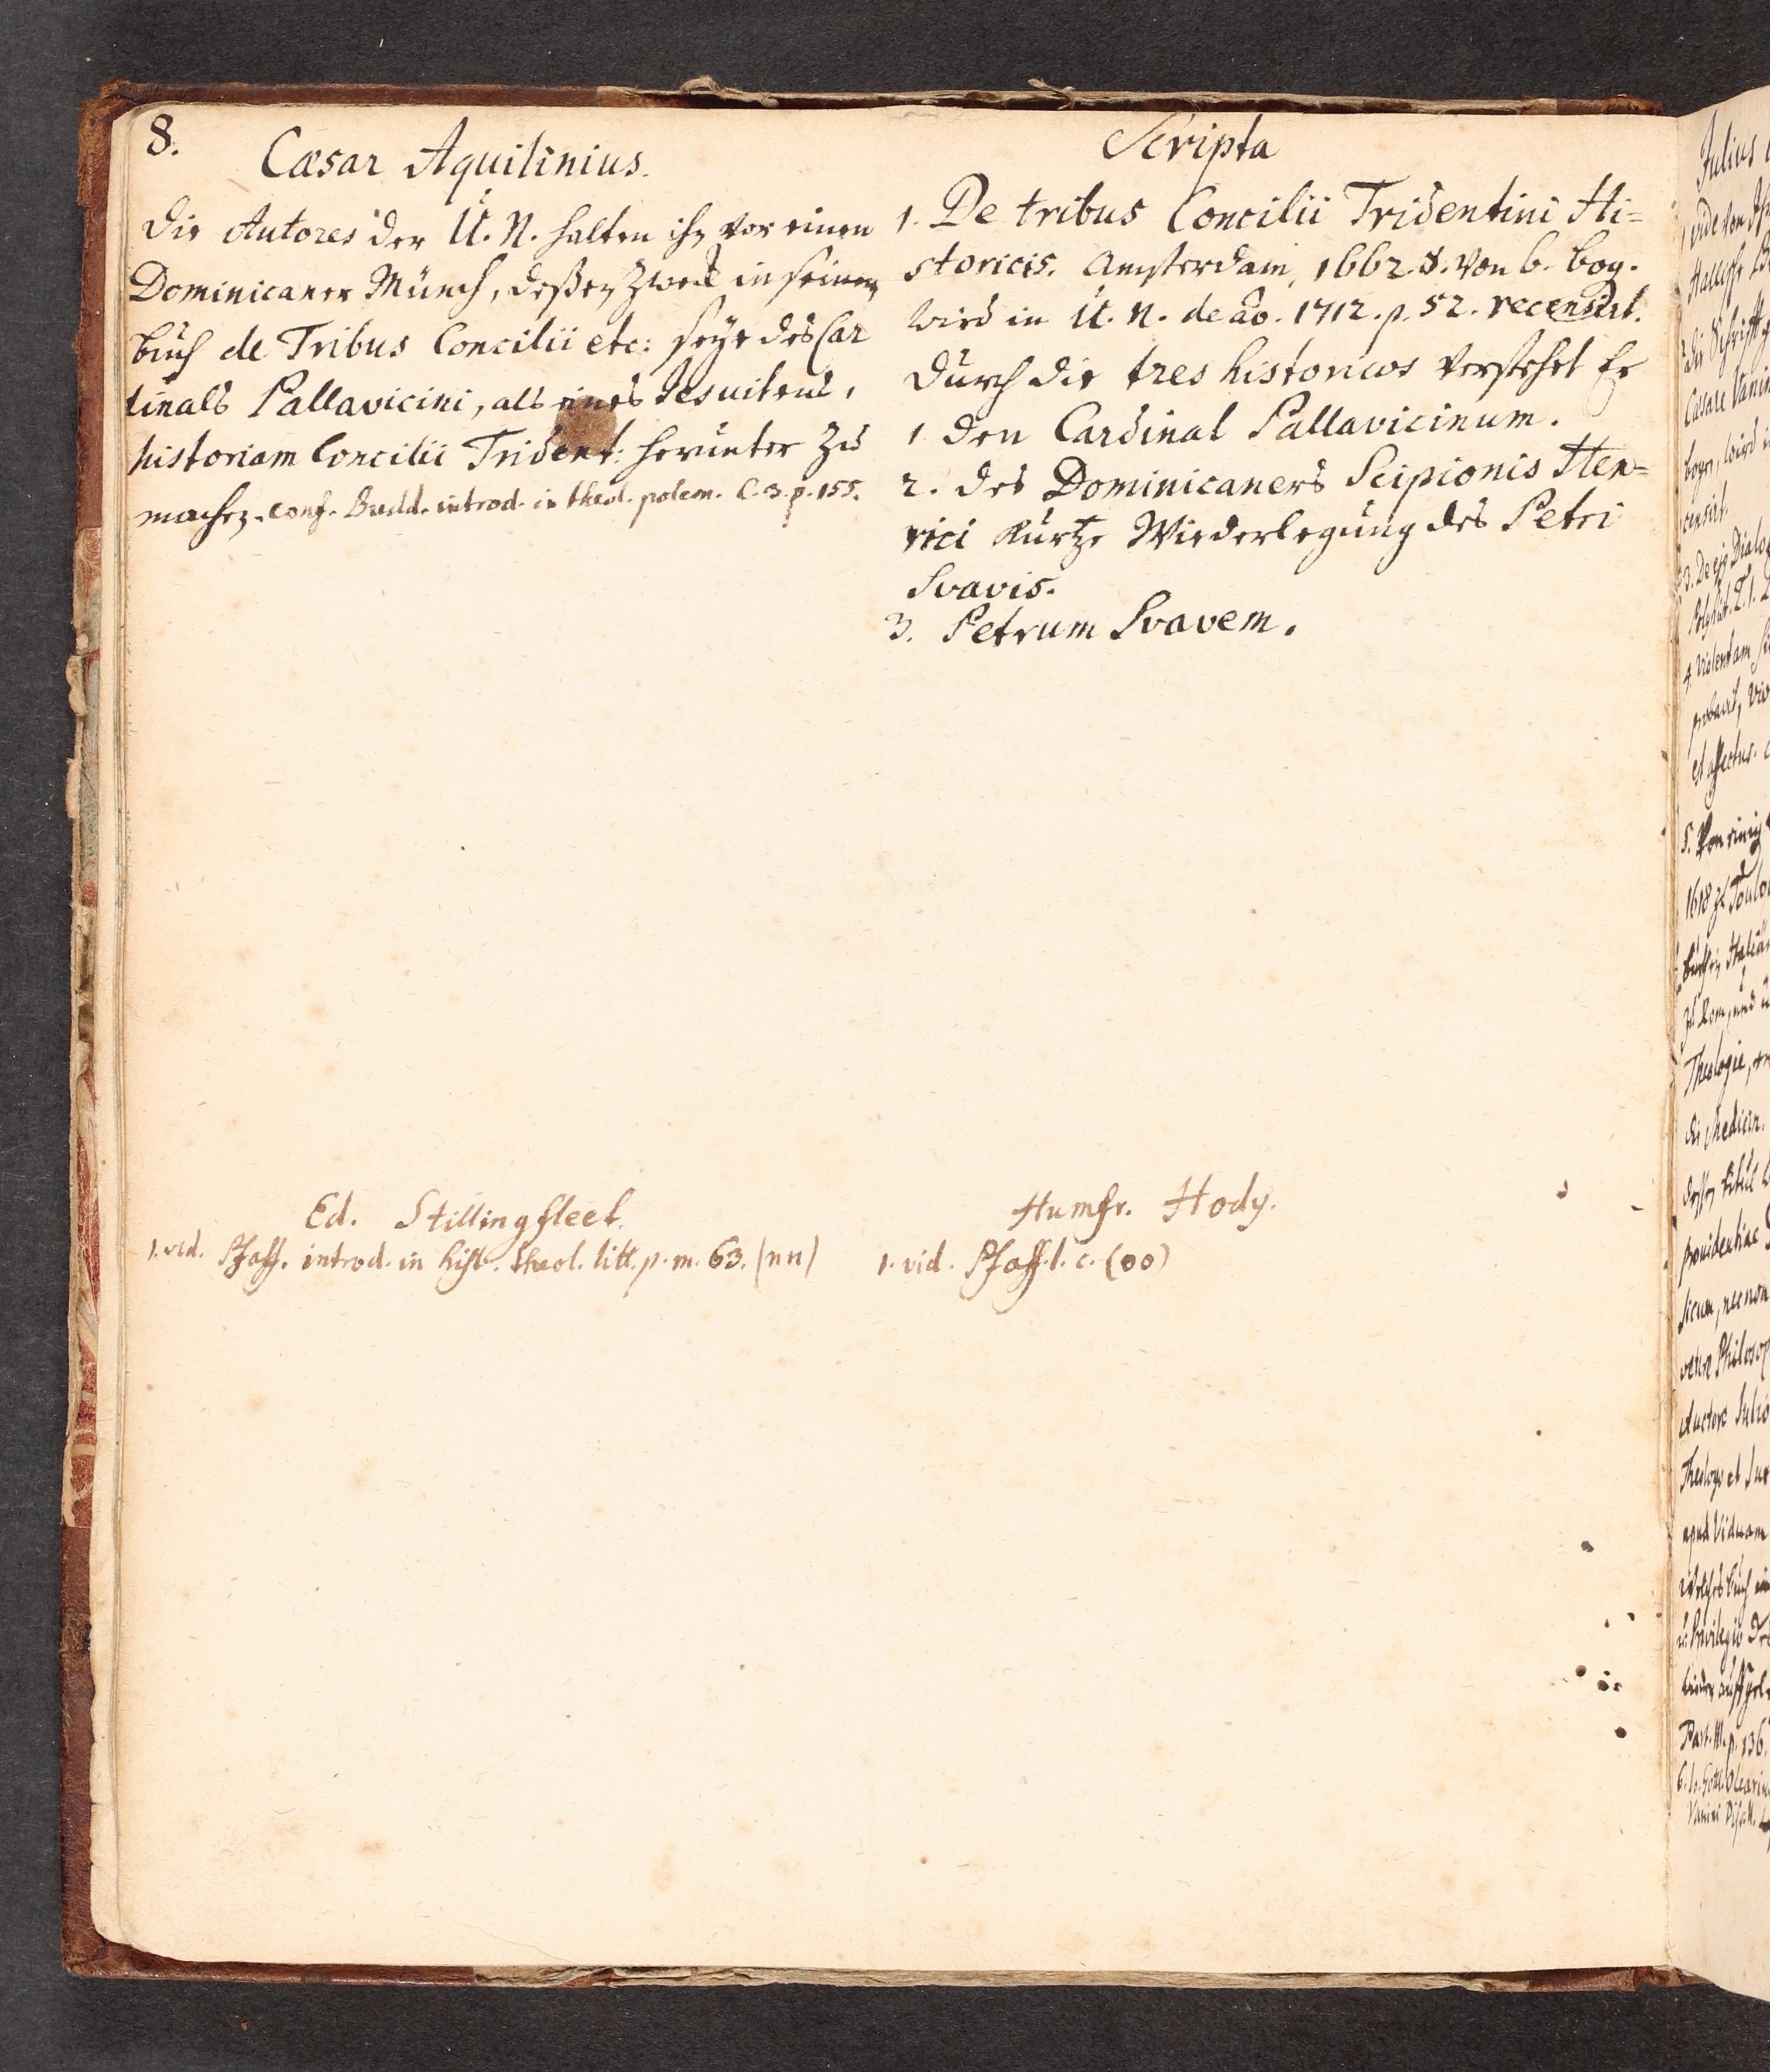 8.
Cæsar Aquilinius.
Die Autores der U. N. halten ihn vor einen
Dominicaner Münch, deßen Zweck in seinem
buch de Tribus Concilii etc: seye des Car
dinals Pallavicini, als eines Jesuitens,
historiam Concilii Trident: herunter zu
machen. conf. Budd. introd. in theol. polem. C. 3. p. 155.
Scripta
1. De tribus Concilii Tridentini Hi=
storicis. Amsterdam, 1662. 8. von 6. bog.
wird in U. N. de ao. 1712. p. 52. recensirt.
Durch die tres historicos verstehet Er
1 den Cardinal Pallavicinum.
2. des Dominicaners Scipionis Hen=
rici kurtze Wiederlegung des Petri
Svavis.
3. Petrum Svavem.
Ed. Stillingfleet.
1. vid. Pfaff. introd. in hist. theol. litt. p. m. 63. (nn)
Humfr. Hody.
1. vid. Pfaff. l. c. (oo)
Julius
vide von
Die Schrifft
Cæsare Vanin
wird
censirt.
3. De ejq Dialog
4. Violentam
et affectus.
5. Von einig
1618 zu Toulou
zu Rom, und
Theologie,
die Medicin.
deßen titul
providentiae
sicum, nec non
veteres Philosop
Auctore Julio
Theologo et Jur
apud Viduam
welches buch
Privilegio
Part. III. p. 136.
6. Jo. Gottl. Oleariu
Vanini Dissert.